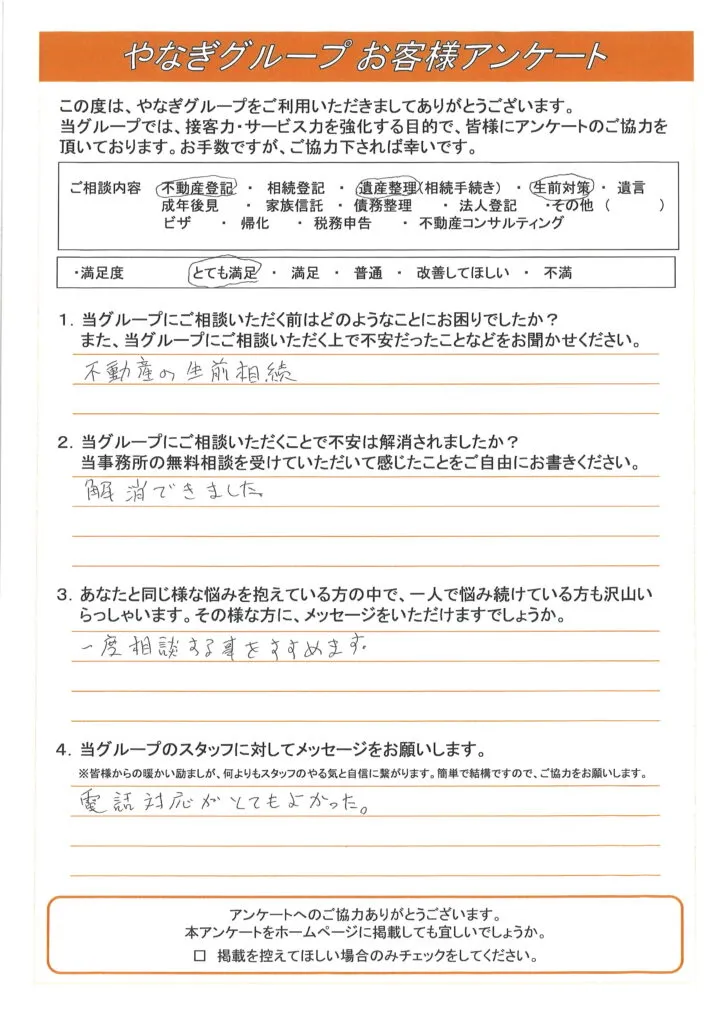 やなぎグループ お客様アンケート
この度は、やなぎグループをご利用いただきましてありがとうございます。
当グループでは、接客力・サービス力を強化する目的で、皆様にアンケートのご協力を
頂いております。お手数ですが、ご協力下されば幸いです。
ご相談内容 不動産登記 ・ 相続登記 ・ 遺産整理(相続手続き) ・ 生前対策 ・ 遺言
成年後見 ・ 家族信託 ・ 債務整理 ・ 法人登記 ・その他 ( )
ビザ ・ 帰化 ・ 税務申告 ・ 不動産コンサルティング
・満足度 とても満足 ・ 満足 ・ 普通 ・ 改善してほしい ・ 不満
1．当グループにご相談いただく前はどのようなことにお困りでしたか？
また、当グループにご相談いただく上で不安だったことなどをお聞かせください。
不動産の生前相続
2．当グループにご相談いただくことで不安は解消されましたか？
当事務所の無料相談を受けていただいて感じたことをご自由にお書きください。
解消できました。
3．あなたと同じ様な悩みを抱えている方の中で、一人で悩み続けている方も沢山い
らっしゃいます。その様な方に、メッセージをいただけますでしょうか。
一度相談する事をすすめます。
4．当グループのスタッフに対してメッセージをお願いします。
※皆様からの暖かい励ましが、何よりもスタッフのやる気と自信に繋がります。簡単で結構ですので、ご協力をお願いします。
電話対応がとてもよかった。
アンケートへのご協力ありがとうございます。
本アンケートをホームページに掲載しても宜しいでしょうか。
□ 掲載を控えてほしい場合のみチェックをしてください。